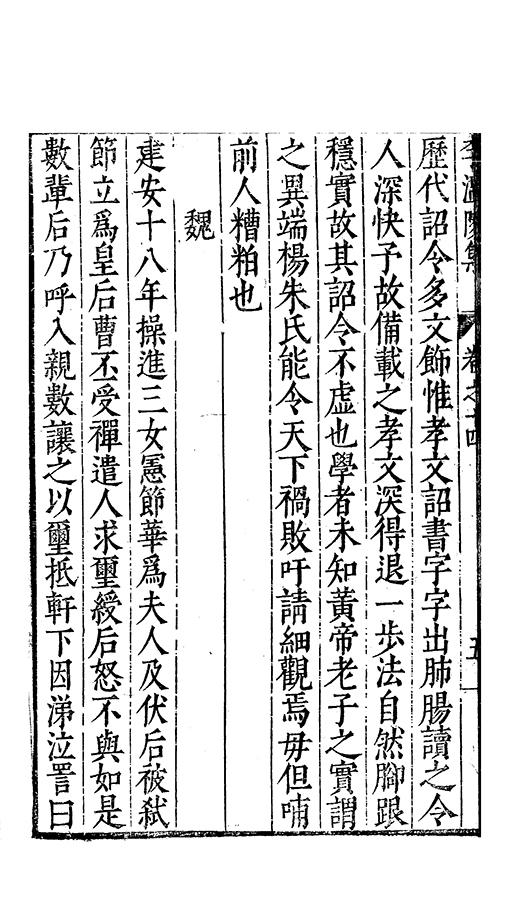 李溫陵集 卷之十四 五
歷代詔令多文飾惟孝文詔書字字出肺腸讀之令
人深快予故備載之孝文深得退一步法自然腳跟
穩實故其詔令不虛也學者未知黃帝老子之實謂
之異端楊朱氏能令天下禍敗吁請細觀焉毋但哺
前人糟粕也
魏
建安十八年操進三女憲節華爲夫人及伏后被弒
節立爲皇后曹丕受禪遣人求璽綬后怒不與如是
數輩后乃呼入親數讓之以璽抵軒下因涕泣詈曰